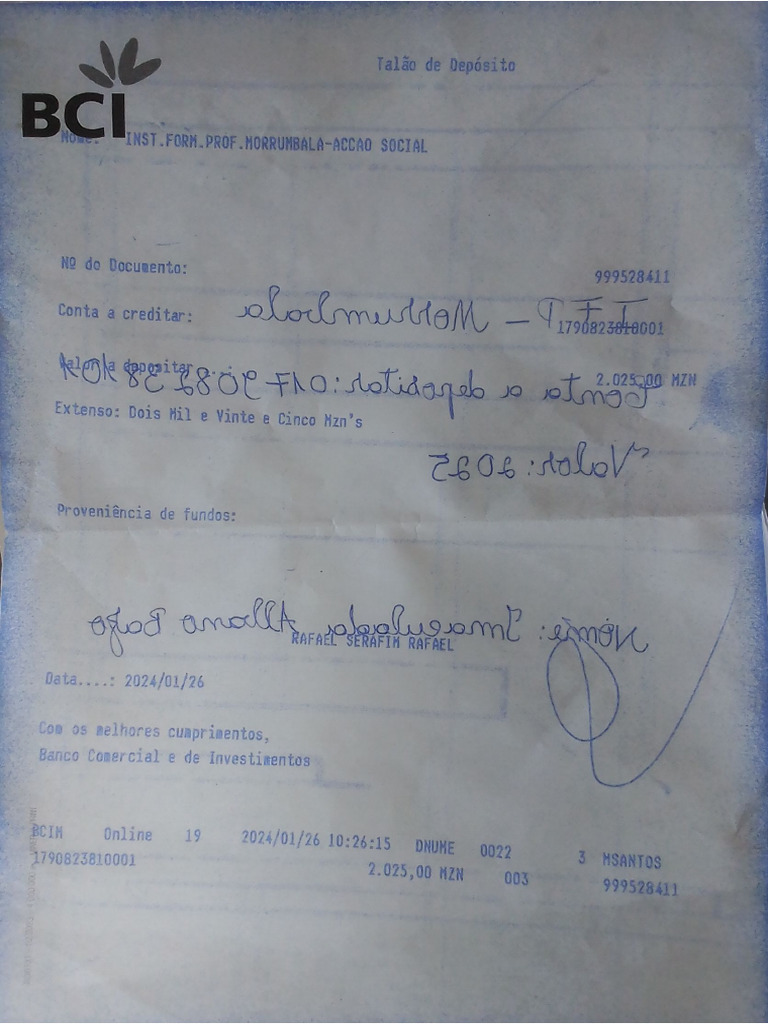 BCI
Talão de Depósito
Nome: INST.FORM.PROF.MORRUMBALA-ACCAO SOCIAL
Nº do Documento: 999528411
Conta a creditar: 1790823810001
I F P - Morrumbala
Valor a depositar... 2.025,00 MZN
Conta a depositar:
Extenso: Dois Mil e Vinte e Cinco Mzn's
Valor: 2025
Proveniência de fundos:
Nome: Imaculada
RAFAEL SERAFIM RAFAEL
Data....: 2024/01/26
Com os melhores cumprimentos,
Banco Comercial e de Investimentos
BCIM Online 19 2024/01/26 10:26:15 DNUME 0022 3 MSANTOS
1790823810001 2.025,00 MZN 003 999528411